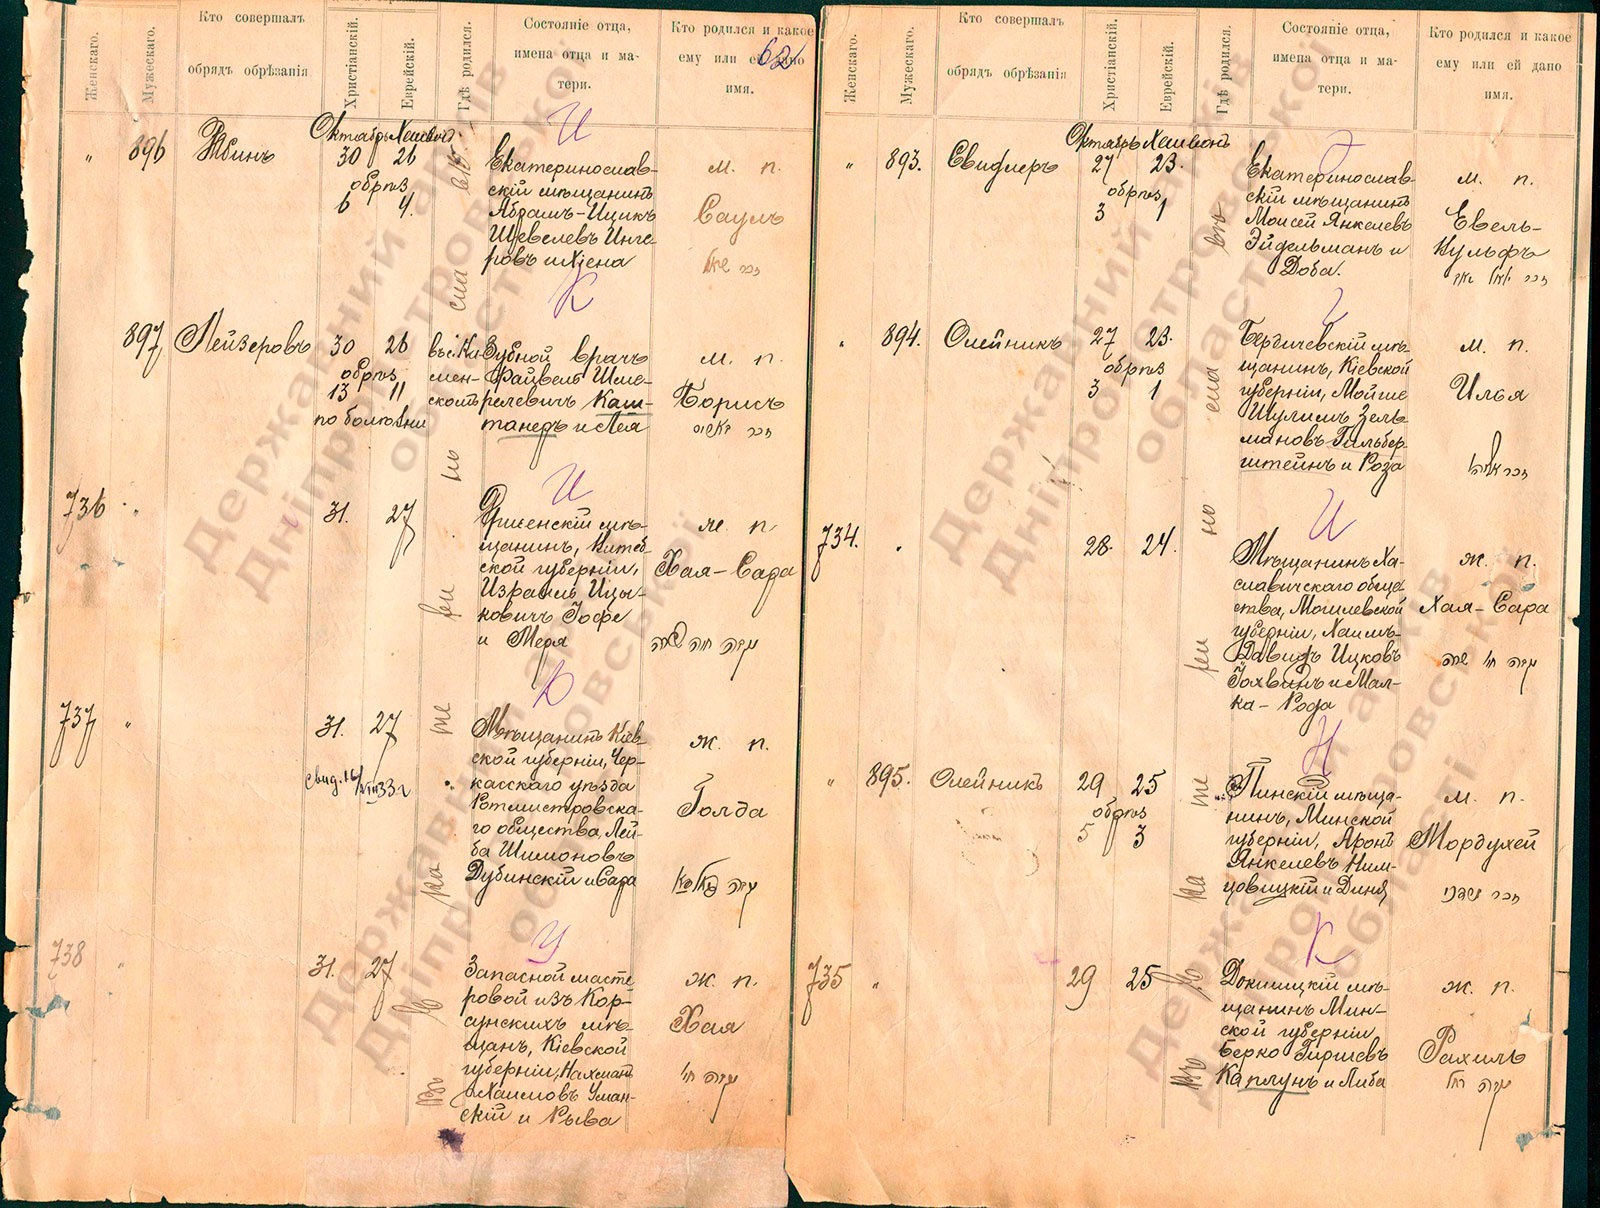 Женскаго.
Мужескаго.
Кто совершалъ
обрядъ обрѣзанія
Христіанскій.
Еврейскій.
Гдѣ родился.
Состояніе отца,
имена отца и ма-
тери.
Кто родился и какое
ему или ей дано
имя.
62
И
Октябрь Хешвонъ
" 896
30 26
обрѣз
6 4.
Екатеринослав-
скій мѣщанинъ
Абрамъ-Ицикъ
Шевелевъ Инге-
ровъ и Хіена
м. п.
Саулъ
К
897 Лейзеровъ
30 26
обрѣз
13 11
по болѣзни
въ с. Ка-
мен-
скомъ
Зубной врачъ
Файвель Шме-
релевичъ Каш-
танеръ и Лея
м. п.
Борисъ
И
736
31. 27
мѣ-
щанинъ, Витеб-
ской губерніи,
Израиль Ицы-
ковичъ Іофе
и Меря
ж. п.
Хая-Сара
עריה חיה שרה
Д
737 "
31. 27
свид. 16/VIII 33 г
Мѣщанинъ Кіев-
ской губерніи, Чер-
касскаго уѣзда
Ротмистровска-
го общества, Лей-
ба Шимоновъ
Дубинскій и Сара
ж. п.
Голда
У
738 "
31. 27
Запасной масте
ровой изъ Кор-
сунскихъ мѣ-
щанъ, Кіевской
губерніи, Нахманъ
Хаимовъ Уман-
скій и Рыва
ж. п.
Хая
Въ Екатеринославѣ
Женскаго.
Мужескаго.
Кто совершалъ
обрядъ обрѣзанія
Христіанскій.
Еврейскій.
Гдѣ родился.
Состояніе отца,
имена отца и ма-
тери.
Кто родился и какое
ему или ей дано
имя.
Э
Октябрь Хешвонъ
" 893. Свидлеръ
27 23.
обрѣз
3 1
Екатеринослав-
скій мѣщанинъ
Моисей Янкелевъ
Эйдельманъ и
Доба.
м. п.
Евель-
Вульфъ
894. Олейникъ
27 23.
обрѣз
3 1
Бердичевскій мѣ-
щанинъ, Кіевской
губерніи, Мойше
Шулимъ Зель
мановъ Гильбер-
штейнъ и Роза
м. п.
Илья
И
734.
28. 24.
Мѣщанинъ Ха-
славичскаго обще
ства, Могилевской
губерніи, Хаимъ-
Давидъ Ицковъ
Іохвинъ и Мал-
ка-Рода
ж. п.
Хая-Сара
Н
" 895. Олейникъ
29 25
обрѣз
5 3
Пинскій мѣща-
нинъ, Минской
губерніи, Аронъ
Янкелевъ Ним-
цовицкій и Диня
м. п.
Мордухей
К
735 "
29 25
Докшицкій мѣ-
щанинъ Мин-
ской губерніи
Берко Гиршевъ
Каплунъ и Либа
ж. п.
Рахиль
Въ Екатеринославѣ
Державний архів
Дніпропетровської
області